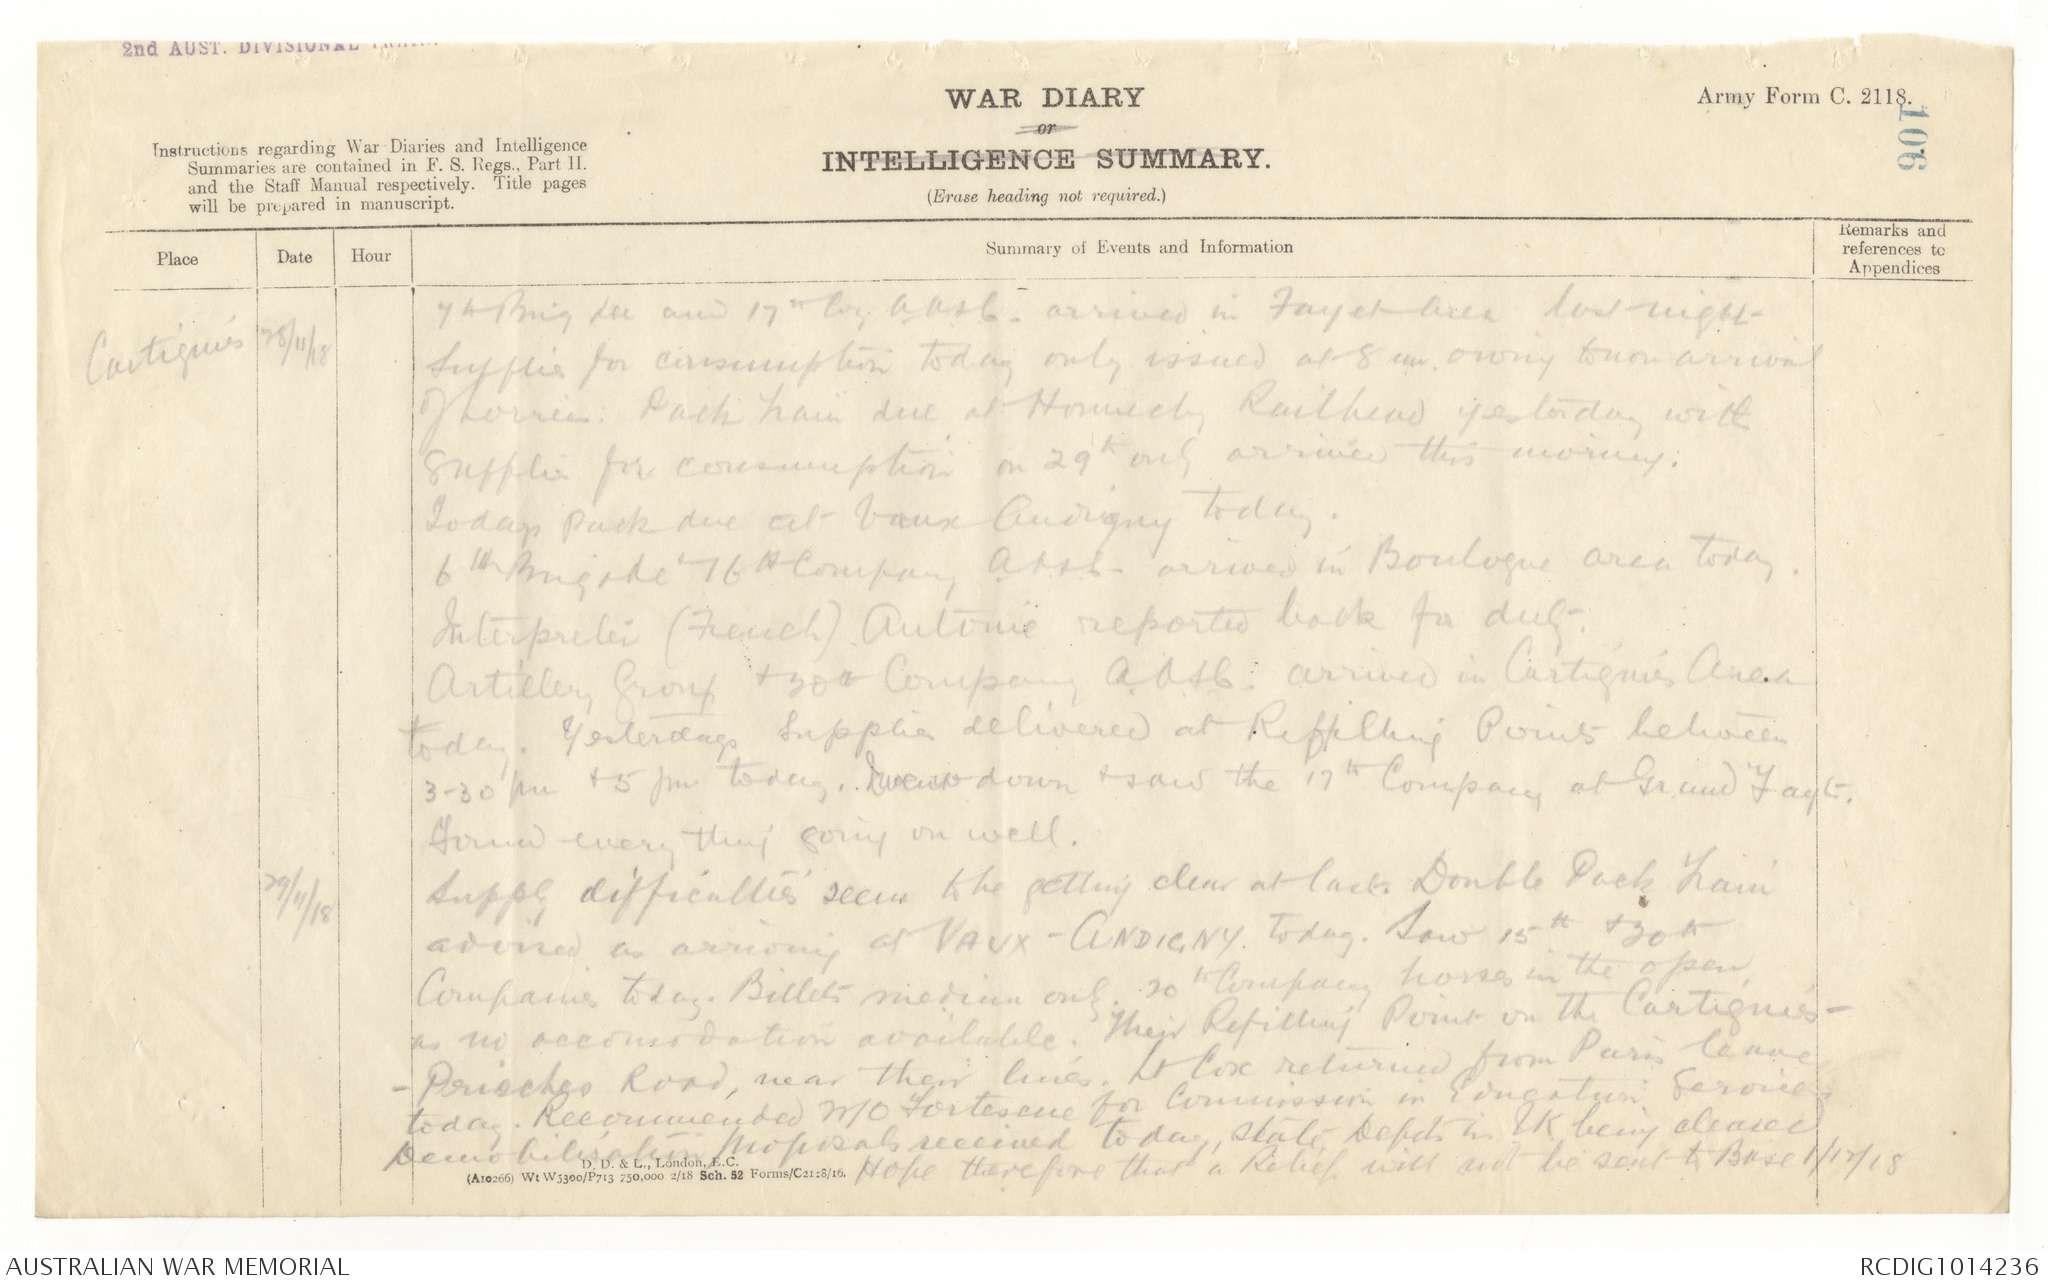 2nd AUST. DIVISIONAL TRAIN
WAR DIARY
or
INTELLIGENCE SUMMARY.
(Erase heading not required.)
Army Form C. 2118.
106
Instructions regarding War Diaries and Intelligence
Summaries are contained in F. S. Regs., Part II.
and the Staff Manual respectively. Title pages
will be prepared in manuscript.
Place
Date
Hour
Summary of Events and Information
Remarks and
references to
Appendices
Cartignies
28/11/18
7th Brigade and 17th Coy AASC. arrived in Fayet Area last night
Supplies for consumption today only issued at 8 am. owing to non arrival
of Lorries. Pack train due at Honnechy Railhead yesterday with
Supplies for consumption on 29th only arrived this morning.
Todays pack due at Vaux Andigny today.
6th Brigade + 16th Company AASC. arrived in Boulogne area today.
Interpreter (French) Antonie reported back for duty.
Artillery Group + 20th Company AASC. arrived in Cartignies Area
today. Yesterdays Supplies delivered at Refilling Points between
3-30 pm + 5 pm today. down + saw the 17th Company at Grand Fayt.
Found everything going on well.
29/11/18
Supply difficulties seem to be getting clear at last. Double Pack Train
advised as arriving at VAUX-ANDIGNY. today. Saw 15th + 20th
Companies today. Billets medium only. 20th Company horses in the open
as no accomodation available. Their Refilling Point on the Cartignies-
- Prisches Road, near their lines. Lt Cox returned from Paris leave
today. Recommended W/O Fortescue for Commission in Education Services
Demobilisation Proposals received today, State Depots in UK being cleared
Hope therefore that a Relief will not be sent to Base 1/12/18
D. D. & L., London, E.C.
(A10266) Wt W5300/P713 750,000 2/18 Sch. 52 Forms/C2118/16.
AUSTRALIAN WAR MEMORIAL
RCDIG1014236